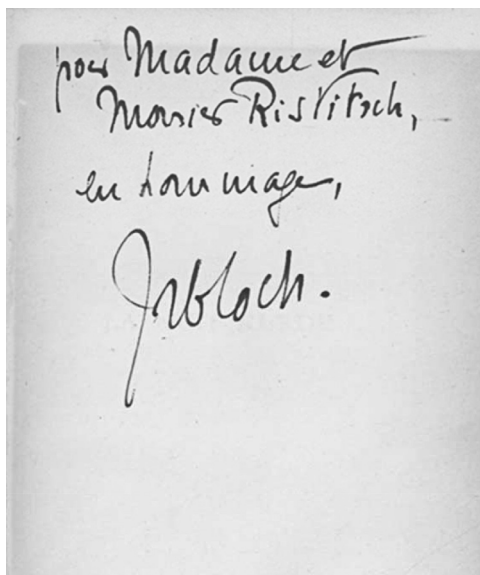 pour Madame et
Monsieur Ristitsch,
en hommage,
JRBloch.